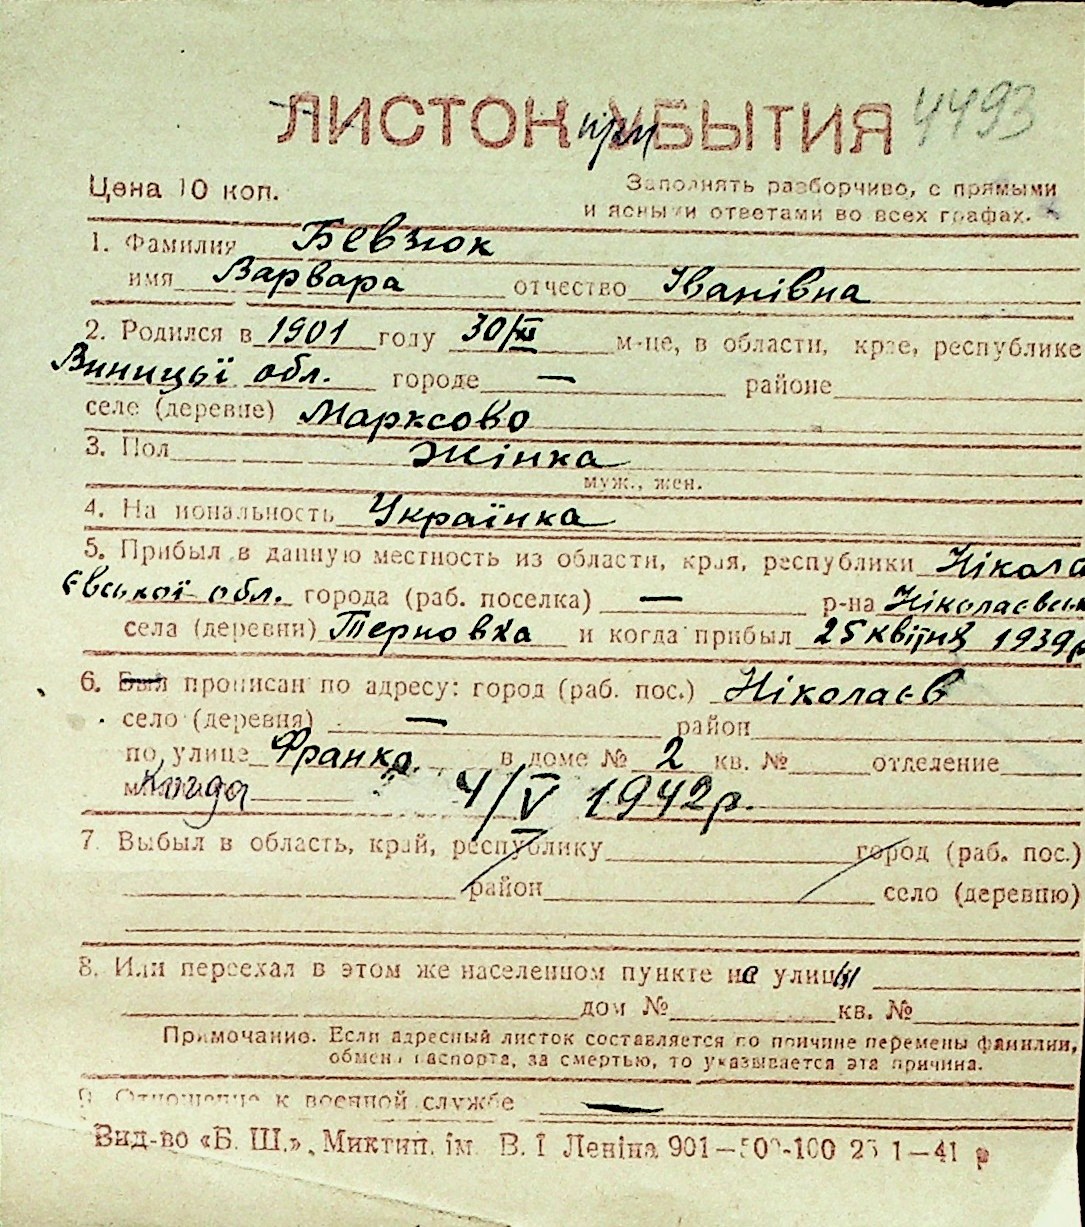 ЛИСТОК при УБЫТИЯ 4493
Цена 10 коп. Заполнять разборчиво, с прямыми
и ясными ответами во всех графах.
1. Фамилия Бевзюк
имя Варвара отчество Іванівна
2. Родился в 1901 году 30/XII м-це, в области, крае, республике
Виницьї обл. городе — районе
селе (деревне) Марксово
3. Пол Жінка
муж., жен.
4. Национальность Українка
5. Прибыл в данную местность из области, края, республики Нікола
євської обл. города (раб. поселка) — р-на Ніколаєвськ
села (деревни) Терновка и когда прибыл 25 квітня 1939р
6. Был прописан по адресу: город (раб. пос.) Ніколаєв
село (деревня) — район
по улице Франко в доме № 2 кв. № отделение
Когда 4/V 1942р.
7. Выбыл в область, край, республику город (раб. пос.)
район село (деревню)
8. Или переехал в этом же населенном пункте на улицы
дом № кв. №
Примочание. Если адресный листок составляется по причине перемены фамилии,
обмена паспорта, за смертью, то указывается эта причина.
9. Отношение к военной службе —
Вид-во «Б. Ш.», Миктип. ім. В. І Леніна 901—500-100 23 1—41 р